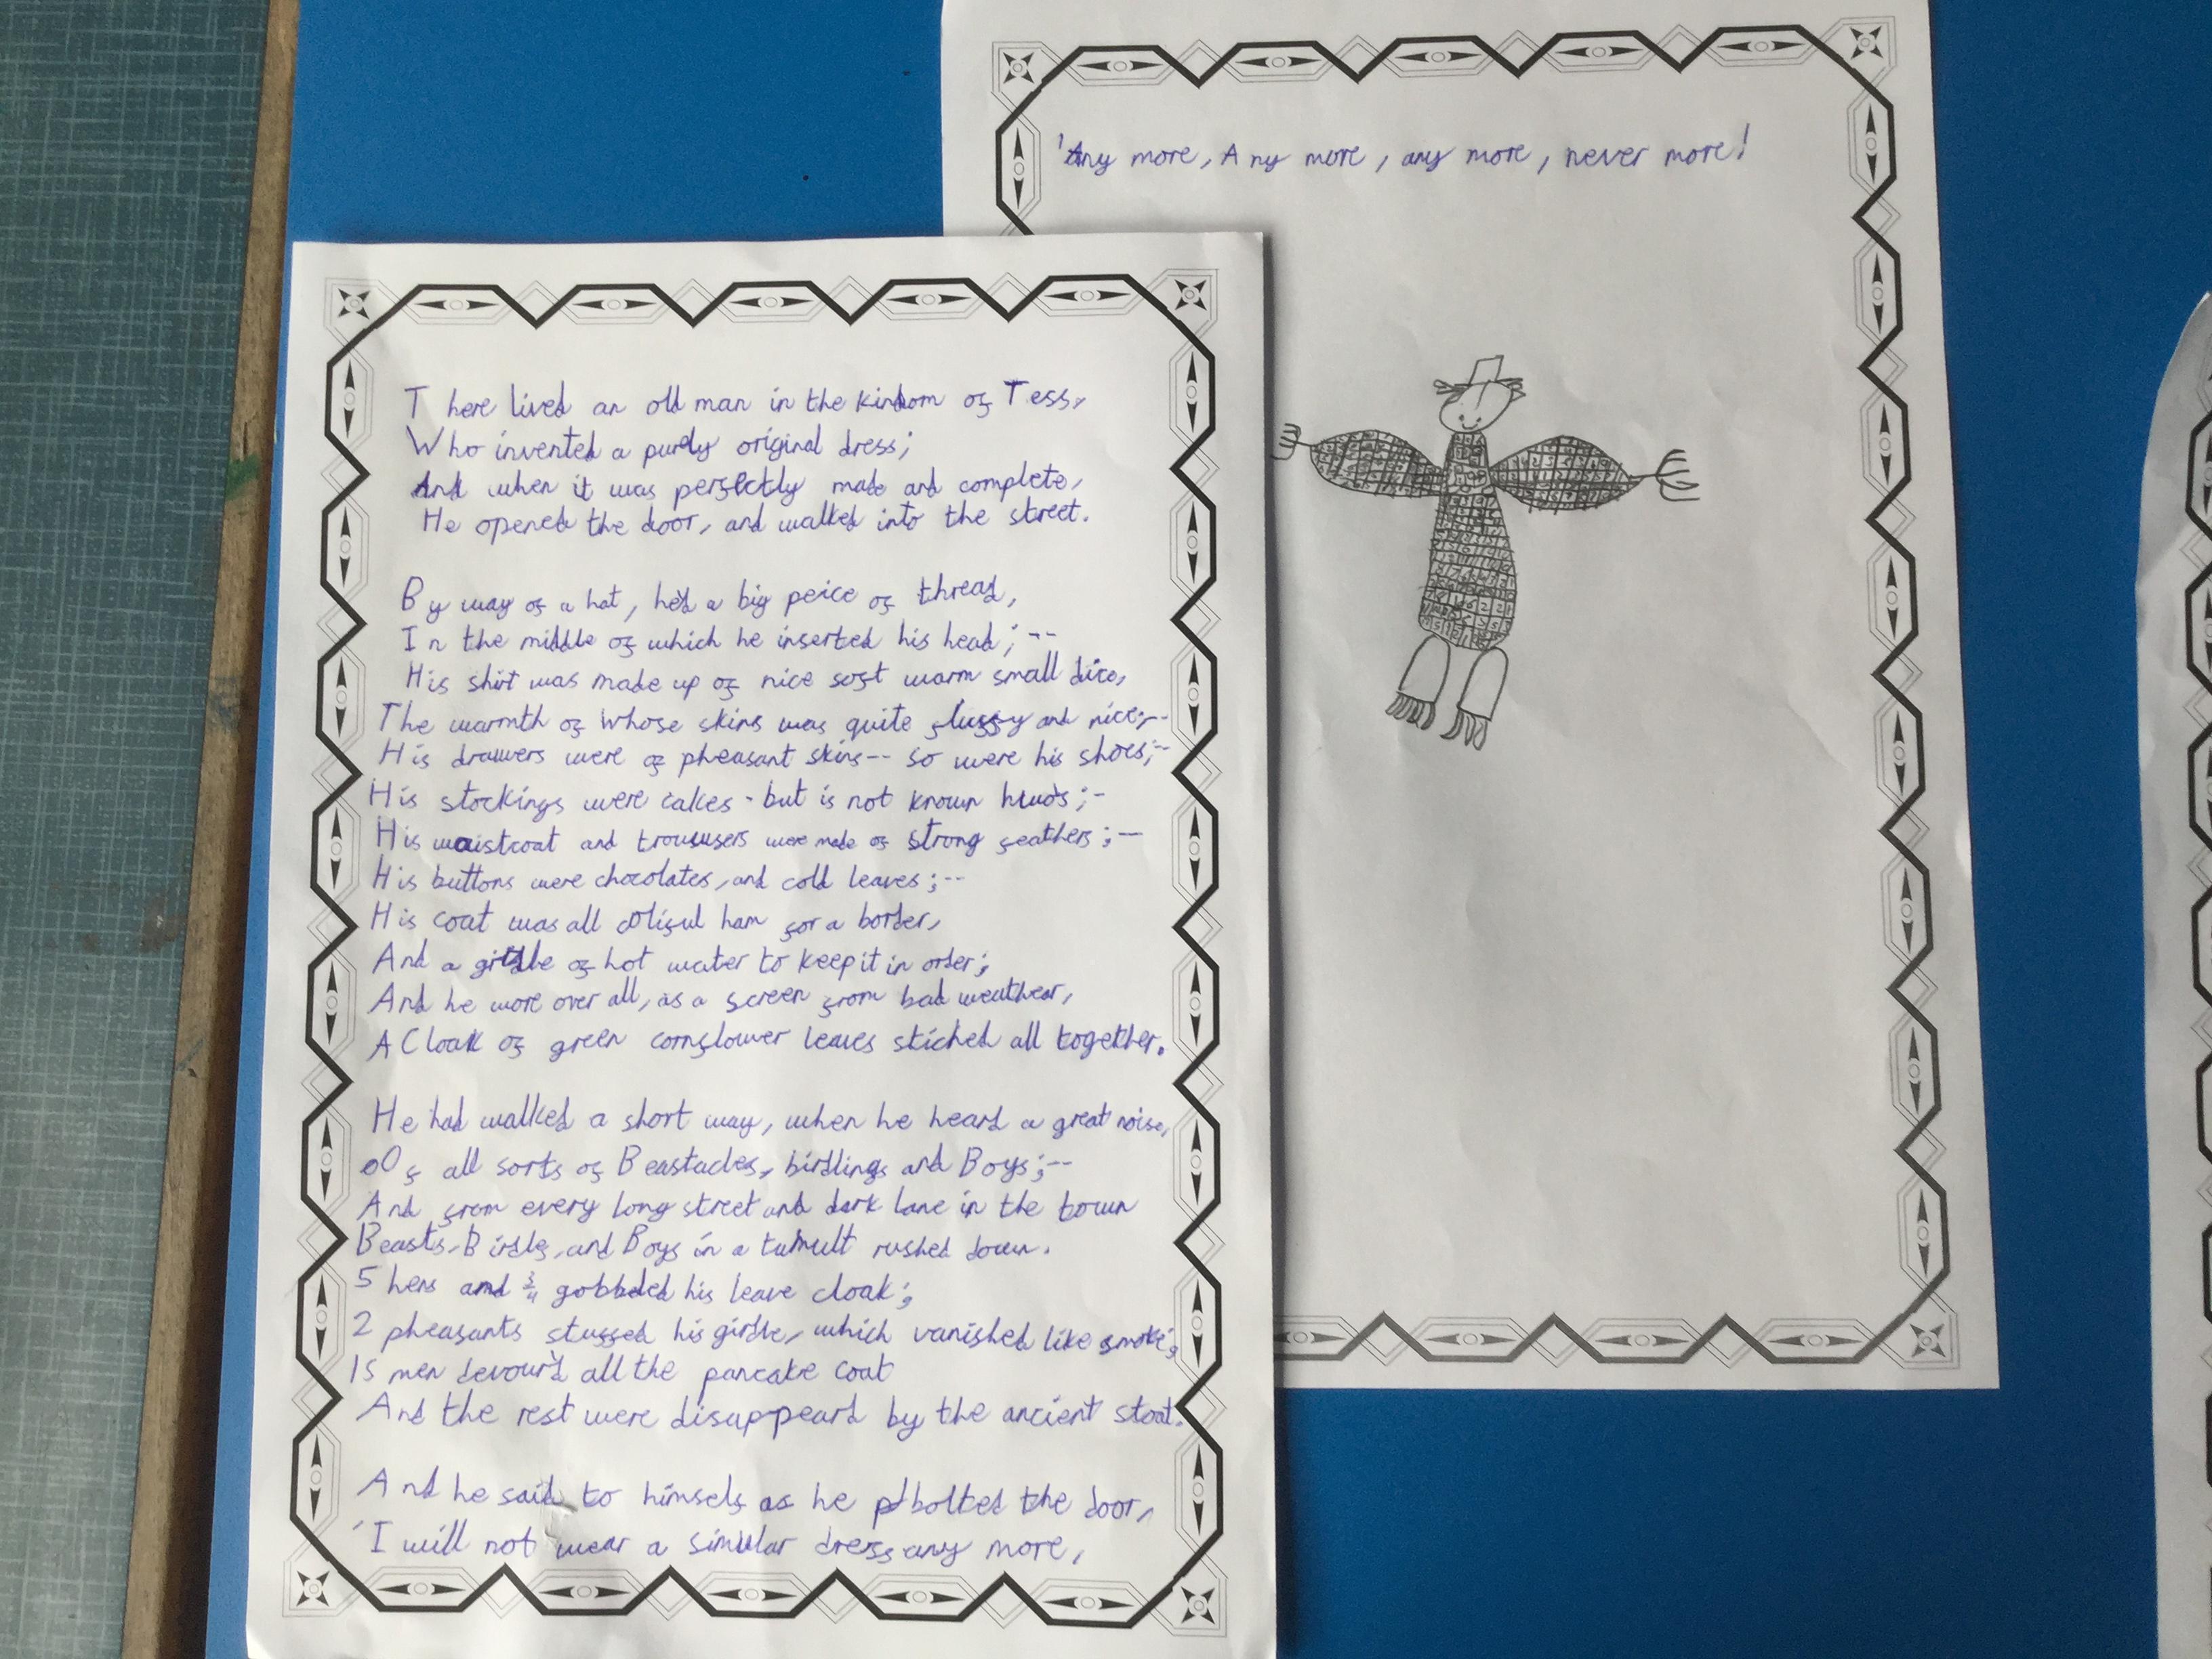 There lived an old man in the kindom of Tess,
Who invented a purely original dress;
And when it was perfectly made and complete,
He opened the door, and walked into the street.
By way of a hat, he'd a big peice of thread,
In the middle of which he inserted his head;--
His shirt was made up of nice soft warm small dice,
The warmth of whose skins was quite fluffy and nice;--
His drawers were of pheasant skins-- so were his shoes;--
His stockings were cakes - but is not known
His waistcoat and troususers were made of strong feathers;--
His buttons were chocolates, and cold leaves;--
His coat was all ham for a border,
And a girdle of hot water to keep it in order;
And he wore over all, as a screen from bad weathear,
A Cloak of green cornflower leaves stiched all together.
He had walked a short way, when he heard a great noise,
Of all sorts of Beastacles, birdlings and Boys;--
And from every long street and dark lane in the town
Beasts, Birdls, and Boys in a tumult rushed down.
5 hens and 3/4 gobbled his leave cloak;
2 pheasants stuffed his girdle, which vanished like smoke;
15 men devour'd all the pancake coat
And the rest were disappeard by the ancient stoat.
And he said to himself as he bolted the door,
'I will not wear a simular dress any more,
'Any more, Any more, any more, never more!